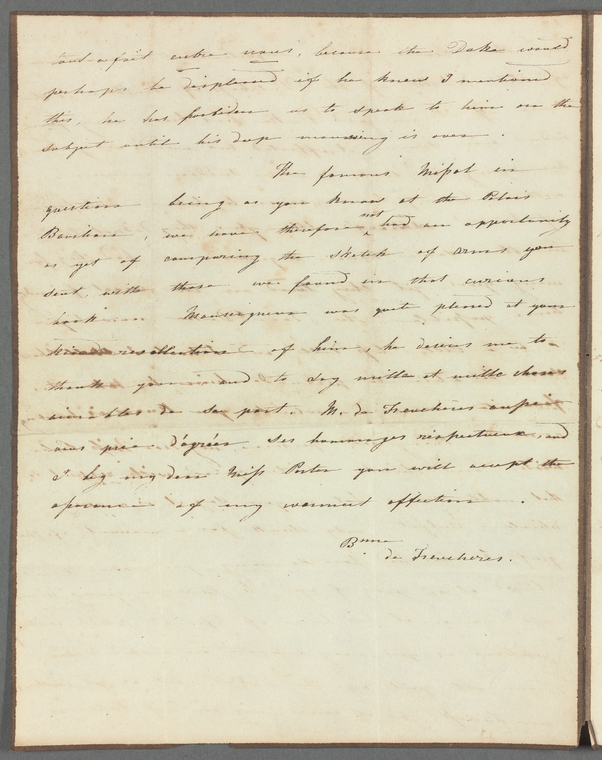 tout-a-fait entre nous, because the Duke would
perhaps be displeased if he knew I mentioned
this, he has forbiden us to speak to him on the
subject until his deep mourning is over.
The famous Missal in
question being as you know at the Palais
Bourbon, we have therefore not had an opportunity
as yet of comparing the sketch of arms you
sent, with those we found in that curious
book. Monseigneur was quit pleased at your
kind recollections of him, he desires me to
thank you and to say mille et mille choses
aimables de sa part. M. de Feucheres
vous prie d'agréer ses hommages respectueux, and
I beg my dear Miss Porter you will accept the
of my warmest affection.
Bnne
de Feucheres.